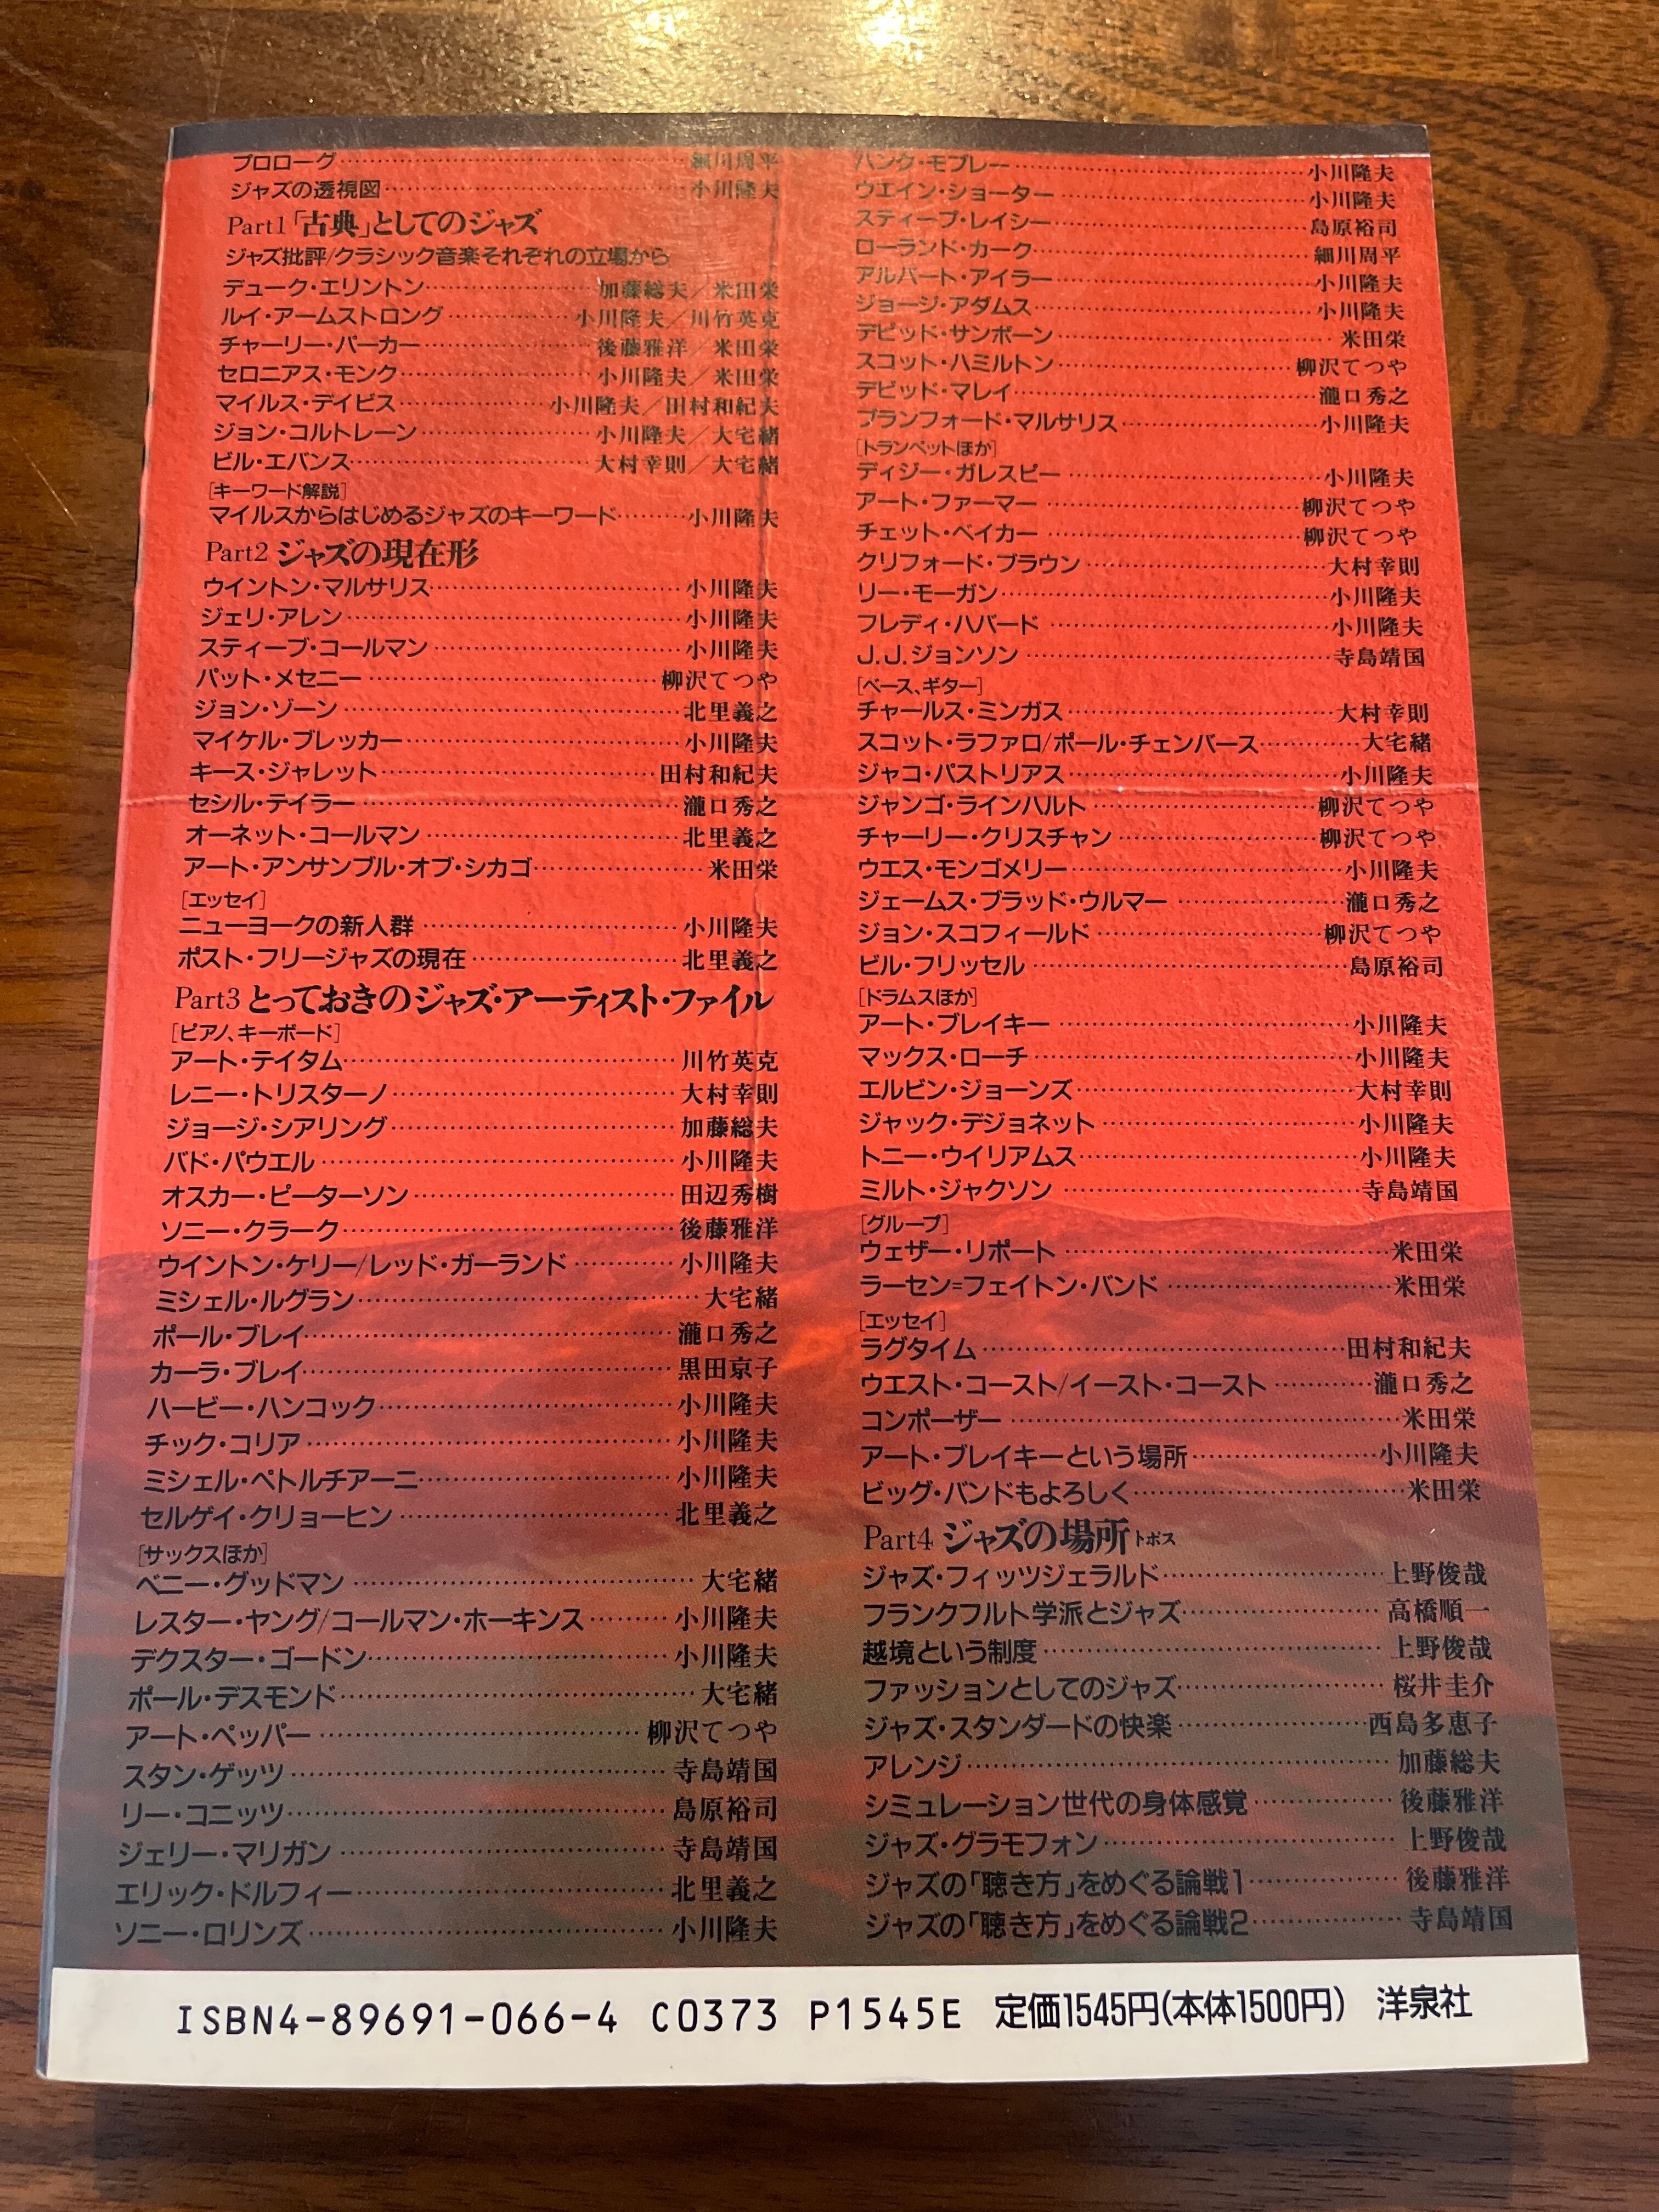 プロローグ……細川周平
ジャズの透視図……小川隆夫
Part1「古典」としてのジャズ
ジャズ批評/クラシック音楽それぞれの立場から
デューク・エリントン……加藤総夫／米田栄
ルイ・アームストロング……小川隆夫／川竹英克
チャーリー・パーカー……後藤雅洋／米田栄
セロニアス・モンク……小川隆夫／米田栄
マイルス・デイビス……小川隆夫／田村和紀夫
ジョン・コルトレーン……小川隆夫／大宅緒
ビル・エバンス……大村幸則／大宅緒
[キーワード解説]
マイルスからはじめるジャズのキーワード……小川隆夫
Part2 ジャズの現在形
ウイントン・マルサリス……小川隆夫
ジェリ・アレン……小川隆夫
スティーブ・コールマン……小川隆夫
パット・メセニー……柳沢てつや
ジョン・ゾーン……北里義之
マイケル・ブレッカー……小川隆夫
キース・ジャレット……田村和紀夫
セシル・テイラー……瀧口秀之
オーネット・コールマン……北里義之
アート・アンサンブル・オブ・シカゴ……米田栄
[エッセイ]
ニューヨークの新人群……小川隆夫
ポスト・フリージャズの現在……北里義之
Part3 とっておきのジャズ・アーティスト・ファイル
[ピアノ、キーボード]
アート・テイタム……川竹英克
レニー・トリスターノ……大村幸則
ジョージ・シアリング……加藤総夫
バド・パウエル……小川隆夫
オスカー・ピーターソン……田辺秀樹
ソニー・クラーク……後藤雅洋
ウイントン・ケリー/レッド・ガーランド……小川隆夫
ミシェル・ルグラン……大宅緒
ポール・ブレイ……瀧口秀之
カーラ・ブレイ……黒田京子
ハービー・ハンコック……小川隆夫
チック・コリア……小川隆夫
ミシェル・ペトルチアーニ……小川隆夫
セルゲイ・クリョーヒン……北里義之
[サックスほか]
ベニー・グッドマン……大宅緒
レスター・ヤング/コールマン・ホーキンス……小川隆夫
デクスター・ゴードン……小川隆夫
ポール・デスモンド……大宅緒
アート・ペッパー……柳沢てつや
スタン・ゲッツ……寺島靖国
リー・コニッツ……島原裕司
ジェリー・マリガン……寺島靖国
エリック・ドルフィー……北里義之
ソニー・ロリンズ……小川隆夫
ハンク・モブレー……小川隆夫
ウエイン・ショーター……小川隆夫
スティーブ・レイシー……島原裕司
ローランド・カーク……細川周平
アルバート・アイラー……小川隆夫
ジョージ・アダムス……小川隆夫
デビッド・サンボーン……米田栄
スコット・ハミルトン……柳沢てつや
デビッド・マレイ……瀧口秀之
ブランフォード・マルサリス……小川隆夫
[トランペットほか]
ディジー・ガレスピー……小川隆夫
アート・ファーマー……柳沢てつや
チェット・ベイカー……柳沢てつや
クリフォード・ブラウン……大村幸則
リー・モーガン……小川隆夫
フレディ・ハバード……小川隆夫
J.J.ジョンソン……寺島靖国
[ベース、ギター]
チャールス・ミンガス……大村幸則
スコット・ラファロ/ポール・チェンバース……大宅緒
ジャコ・パストリアス……小川隆夫
ジャンゴ・ラインハルト……柳沢てつや
チャーリー・クリスチャン……柳沢てつや
ウエス・モンゴメリー……小川隆夫
ジェームス・ブラッド・ウルマー……瀧口秀之
ジョン・スコフィールド……柳沢てつや
ビル・フリッセル……島原裕司
[ドラムスほか]
アート・ブレイキー……小川隆夫
マックス・ローチ……小川隆夫
エルビン・ジョーンズ……大村幸則
ジャック・デジョネット……小川隆夫
トニー・ウイリアムス……小川隆夫
ミルト・ジャクソン……寺島靖国
[グループ]
ウェザー・リポート……米田栄
ラーセン=フェイトン・バンド……米田栄
[エッセイ]
ラグタイム……田村和紀夫
ウエスト・コースト/イースト・コースト……瀧口秀之
コンポーザー……米田栄
アート・ブレイキーという場所……小川隆夫
ビッグ・バンドもよろしく……米田栄
Part4 ジャズの場所トポス
ジャズ・フィッツジェラルド……上野俊哉
フランクフルト学派とジャズ……高橋順一
越境という制度……上野俊哉
ファッションとしてのジャズ……桜井圭介
ジャズ・スタンダードの快楽……西島多恵子
アレンジ……加藤総夫
シミュレーション世代の身体感覚……後藤雅洋
ジャズ・グラモフォン……上野俊哉
ジャズの「聴き方」をめぐる論戦1……後藤雅洋
ジャズの「聴き方」をめぐる論戦2……寺島靖国
ISBN4-89691-066-4 C0373 P1545E 定価1545円(本体1500円) 洋泉社